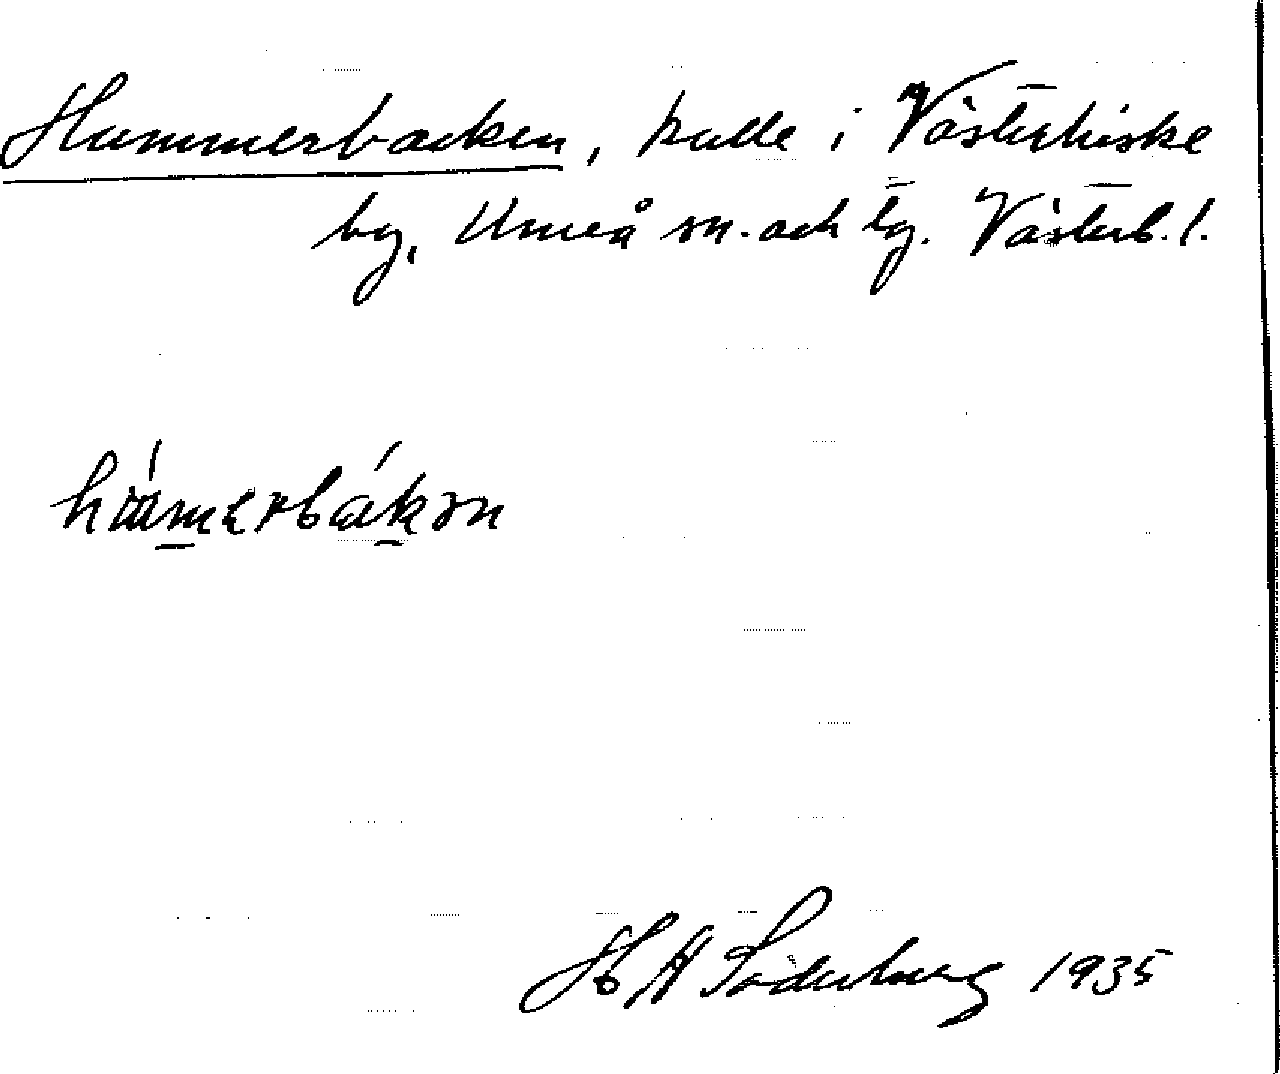 Hummerbacken, kulle i Västerhiske
by, Umeå sn. och tg. Västerb. l.
H A Söderberg 1935